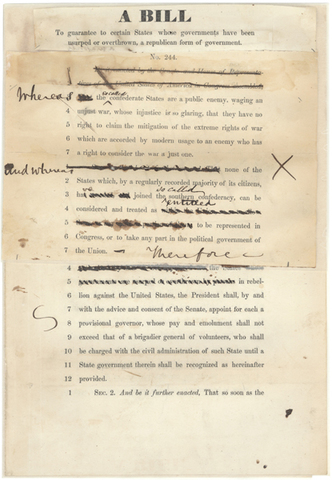 A BILL
To guarantee to certain States whose governments have been
usurped or overthrown, a republican form of government.
No. 244.
Whereas so called
3 the confederate States are a public enemy, waging an
4 unjust war, whose injustice is so glaring, that they have no
5 right to claim the mitigation of the extreme rights of war
6 which are accorded by modern usage to an enemy who has
7 a right to consider the war a just one.
And whereas none of the
2 States which, by a regularly recorded majority of its citizens,
so called
3 joined the southern confederacy, can be
entitled
4 considered and treated as
5 to be represented in
6 Congress, or to take any part in the political government of
7 the Union. — Therefore
4
5 in rebel-
6 lion against the United States, the President shall, by and
7 with the advice and consent of the Senate, appoint for each a
8 provisional governor, whose pay and emolument shall not
9 exceed that of a brigadier general of volunteers, who shall
10 be charged with the civil administration of such State until a
11 State government therein shall be recognized as hereinafter
12 provided.
1 SEC. 2. And be it further enacted, That so soon as the